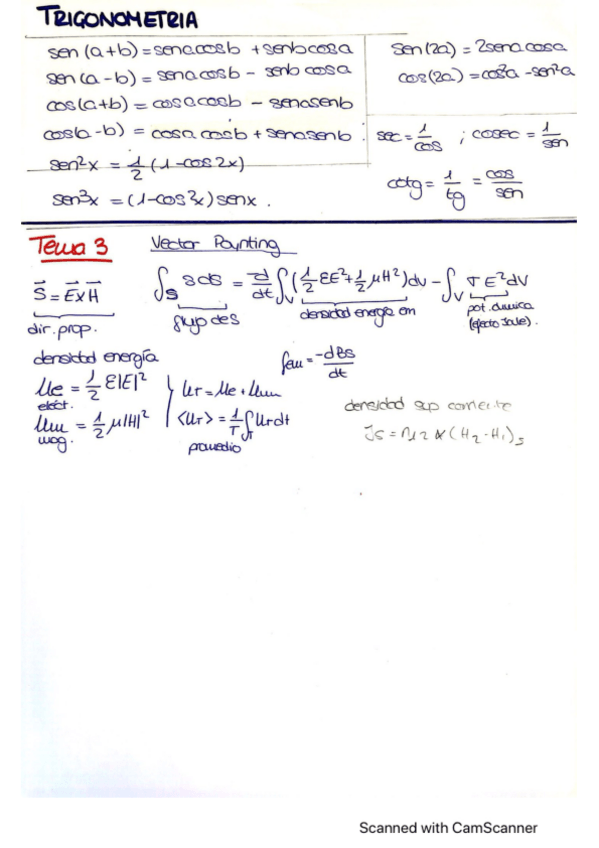 TRIGONOMETRIA
sen (a+b) = senacosb + senbcosa
sen (a-b) = senacosb - senb cosa
cos(a+b) = cosacosb - senasenb
cos(a-b) = cosa cosb + senasenb
sen²x = 1/2 (1-cos2x)
sen³x = (1-cos²x) senx.
sen(2a) = 2senacosa
cos(2a) = cos²a - sen²a
sec = 1/cos ; cosec = 1/sen
cotg = 1/tg = cos/sen
Tema 3 Vector Poynting
S = E x H
dir. prop.
∫s s ds = d/dt ∫v (1/2 εE² + 1/2 μH²) dv - ∫v σ E² dV
flujo de s
densidad energia em
pot. disipada
(efecto Joule).
densidad energía
ue = 1/2 ε|E|²
eléct.
um = 1/2 μ|H|²
mag.
ur = ue + um
<ur> = 1/T ∫T ur dt
promedio
fem = -dBs/dt
densidad sup corriente
Js = n12 x (H2 - H1)s
Scanned with CamScanner